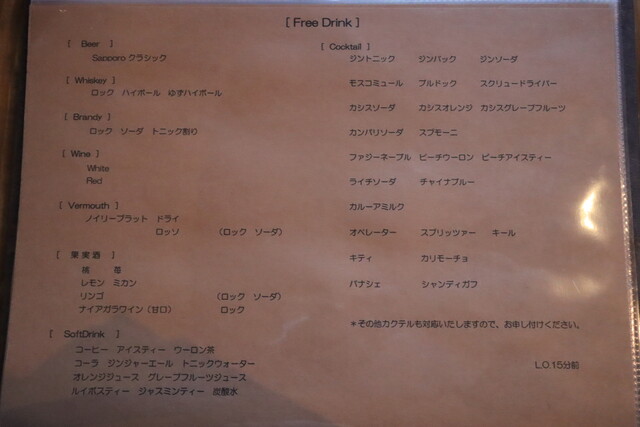 [ Free Drink ]
[ Beer ]
Sapporo クラシック
[ Whiskey ]
ロック ハイボール ゆずハイボール
[ Brandy ]
ロック ソーダ トニック割り
[ Wine ]
White
Red
[ Vermouth ]
ノイリープラット ドライ
ロッソ (ロック ソーダ)
[ 果実酒 ]
桃 苺
レモン ミカン
リンゴ (ロック ソーダ)
ナイアガラワイン (甘口) ロック
[ SoftDrink ]
コーヒー アイスティー ウーロン茶
コーラ ジンジャーエール トニックウォーター
オレンジジュース グレープフルーツジュース
ルイボスティー ジャスミンティー 炭酸水
[ Cocktail ]
ジントニック ジンバック ジンソーダ
モスコミュール ブルドック スクリュードライバー
カシスソーダ カシスオレンジ カシスグレープフルーツ
カンパリソーダ スプモーニ
ファジーネーブル ピーチウーロン ピーチアイスティー
ライチソーダ チャイナブルー
カルーアミルク
オペレーター スプリッツァー キール
キティ カリモーチョ
パナシェ シャンディガフ
*その他カクテルも対応いたしますので、お申し付けください。
L.O.15分前